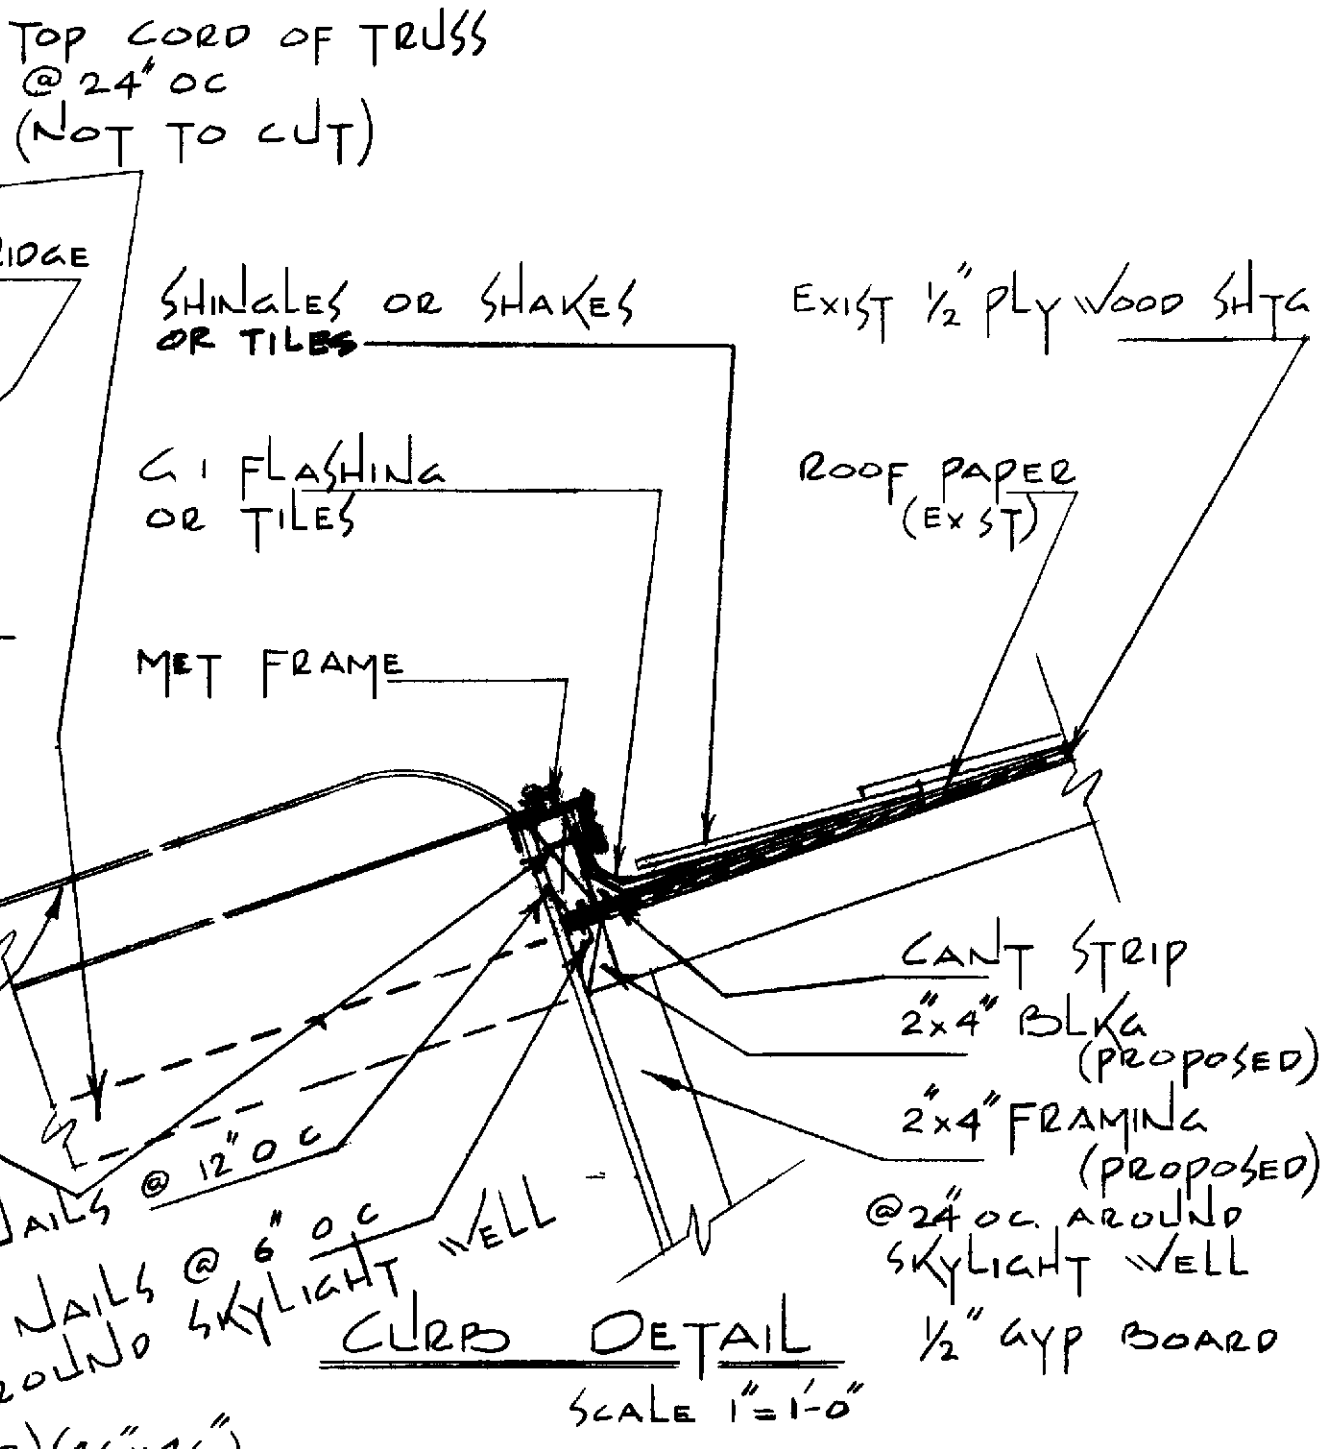 TOP CORD OF TRUSS
@ 24" OC
(NOT TO CUT)
SHINGLES OR SHAKES
OR TILES
EXIST 1/2" PLYWOOD SHTG
G I FLASHING
OR TILES
ROOF PAPER
(EXST)
MET FRAME
CANT STRIP
2"x4" BLKG
(PROPOSED)
2"x4" FRAMING
(PROPOSED)
@ 24" OC. AROUND
SKYLIGHT WELL
1/2" GYP BOARD
@ 12" O C
NAILS @ 6" O.C
SKYLIGHT WELL
CURB DETAIL
SCALE 1"=1'-0"